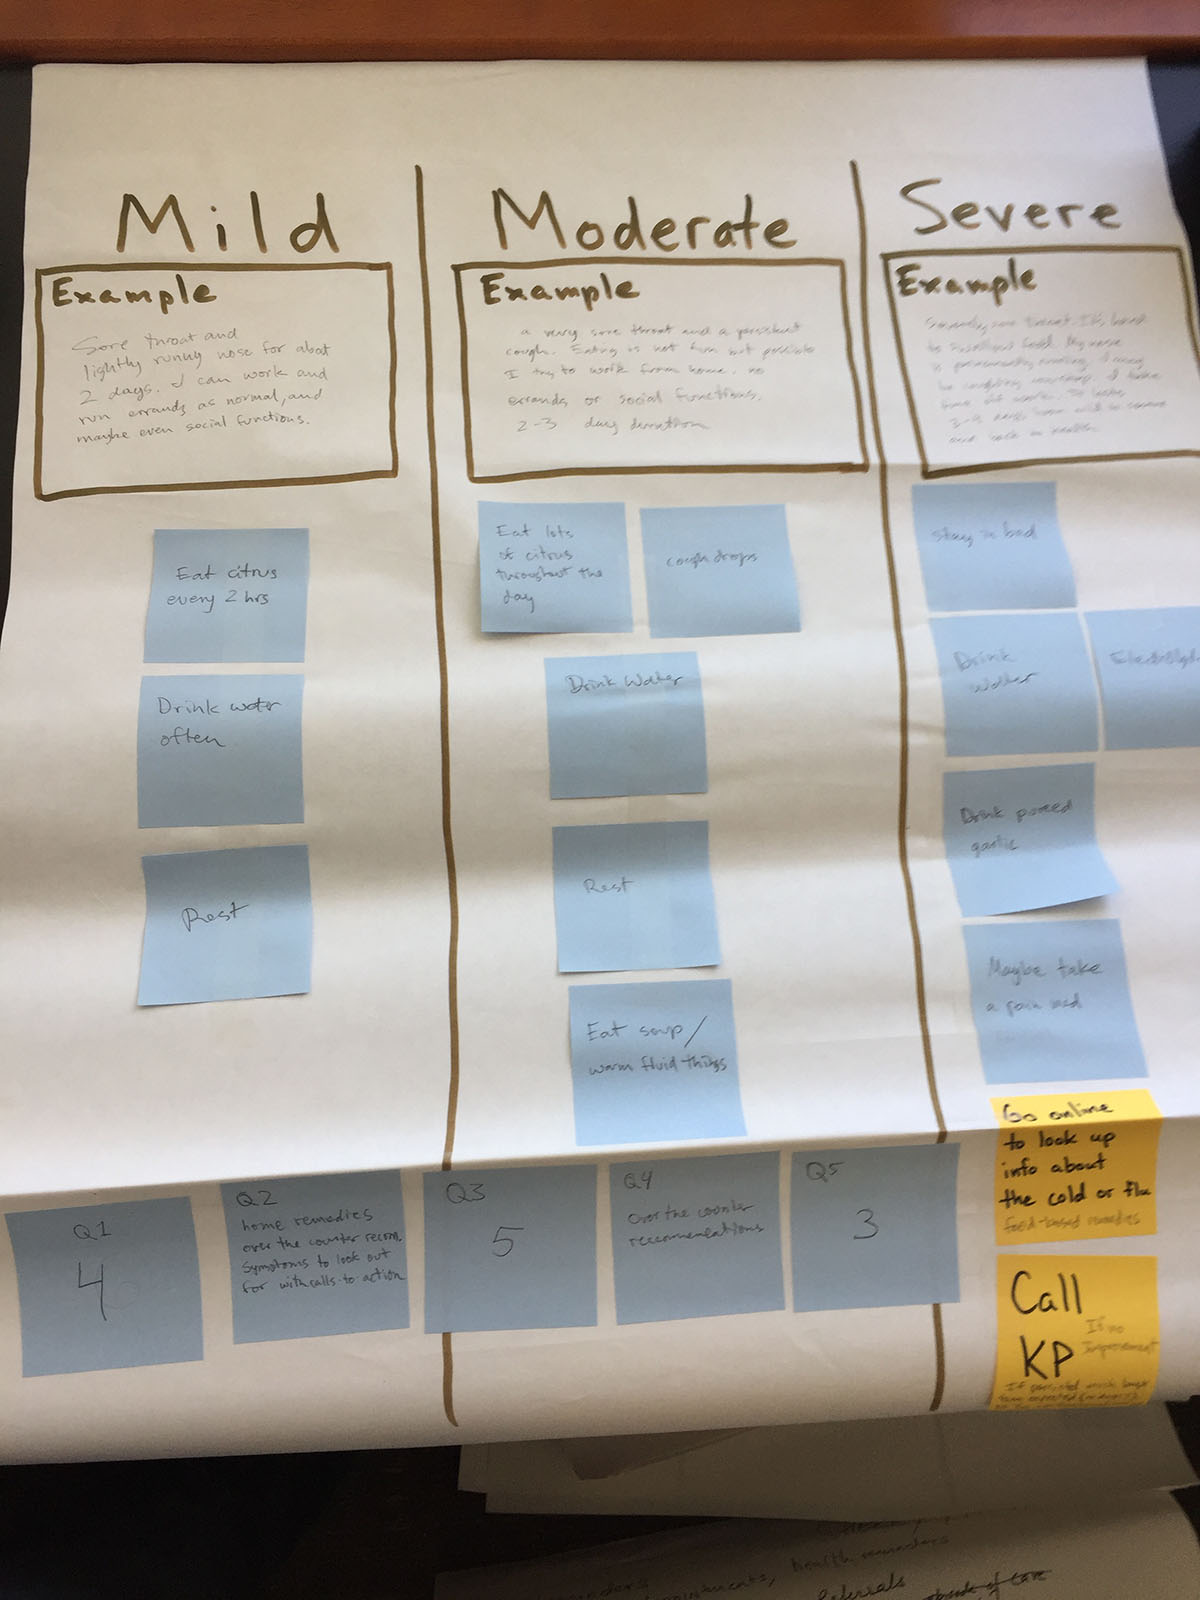 Mild
Example
Sore throat and
lightly runny nose for about
2 days. I can work and
run errands as normal, and
maybe even social functions.
Eat citrus
every 2 hrs
Drink water
often
Rest
Moderate
Example
a very sore throat and a persistent
cough. Eating is not fun but possible
I try to work from home. no
errands or social functions.
2-3 day duration
Eat lots
of citrus
throughout the
day
cough drops
Drink Water
Rest
Eat soup/
warm fluid things
Severe
Example
Severely sore throat. It's hard
to swallow food. My nose
is permanently running. I may
be coughing nonstop. I take
time off work.
Stay in bed
Drink
Water
Drink pureed
garlic
Maybe take
a pain med
Go online
to look up
info about
the cold or flu
food-based remedies
Call
KP
If no
improvement
Q1
4
Q2
home remedies
over the counter recom.
Symptoms to look out
for with calls-to-action
Q3
5
Q4
over the counter
reccomendations
Q5
3
health reminders
Referrals